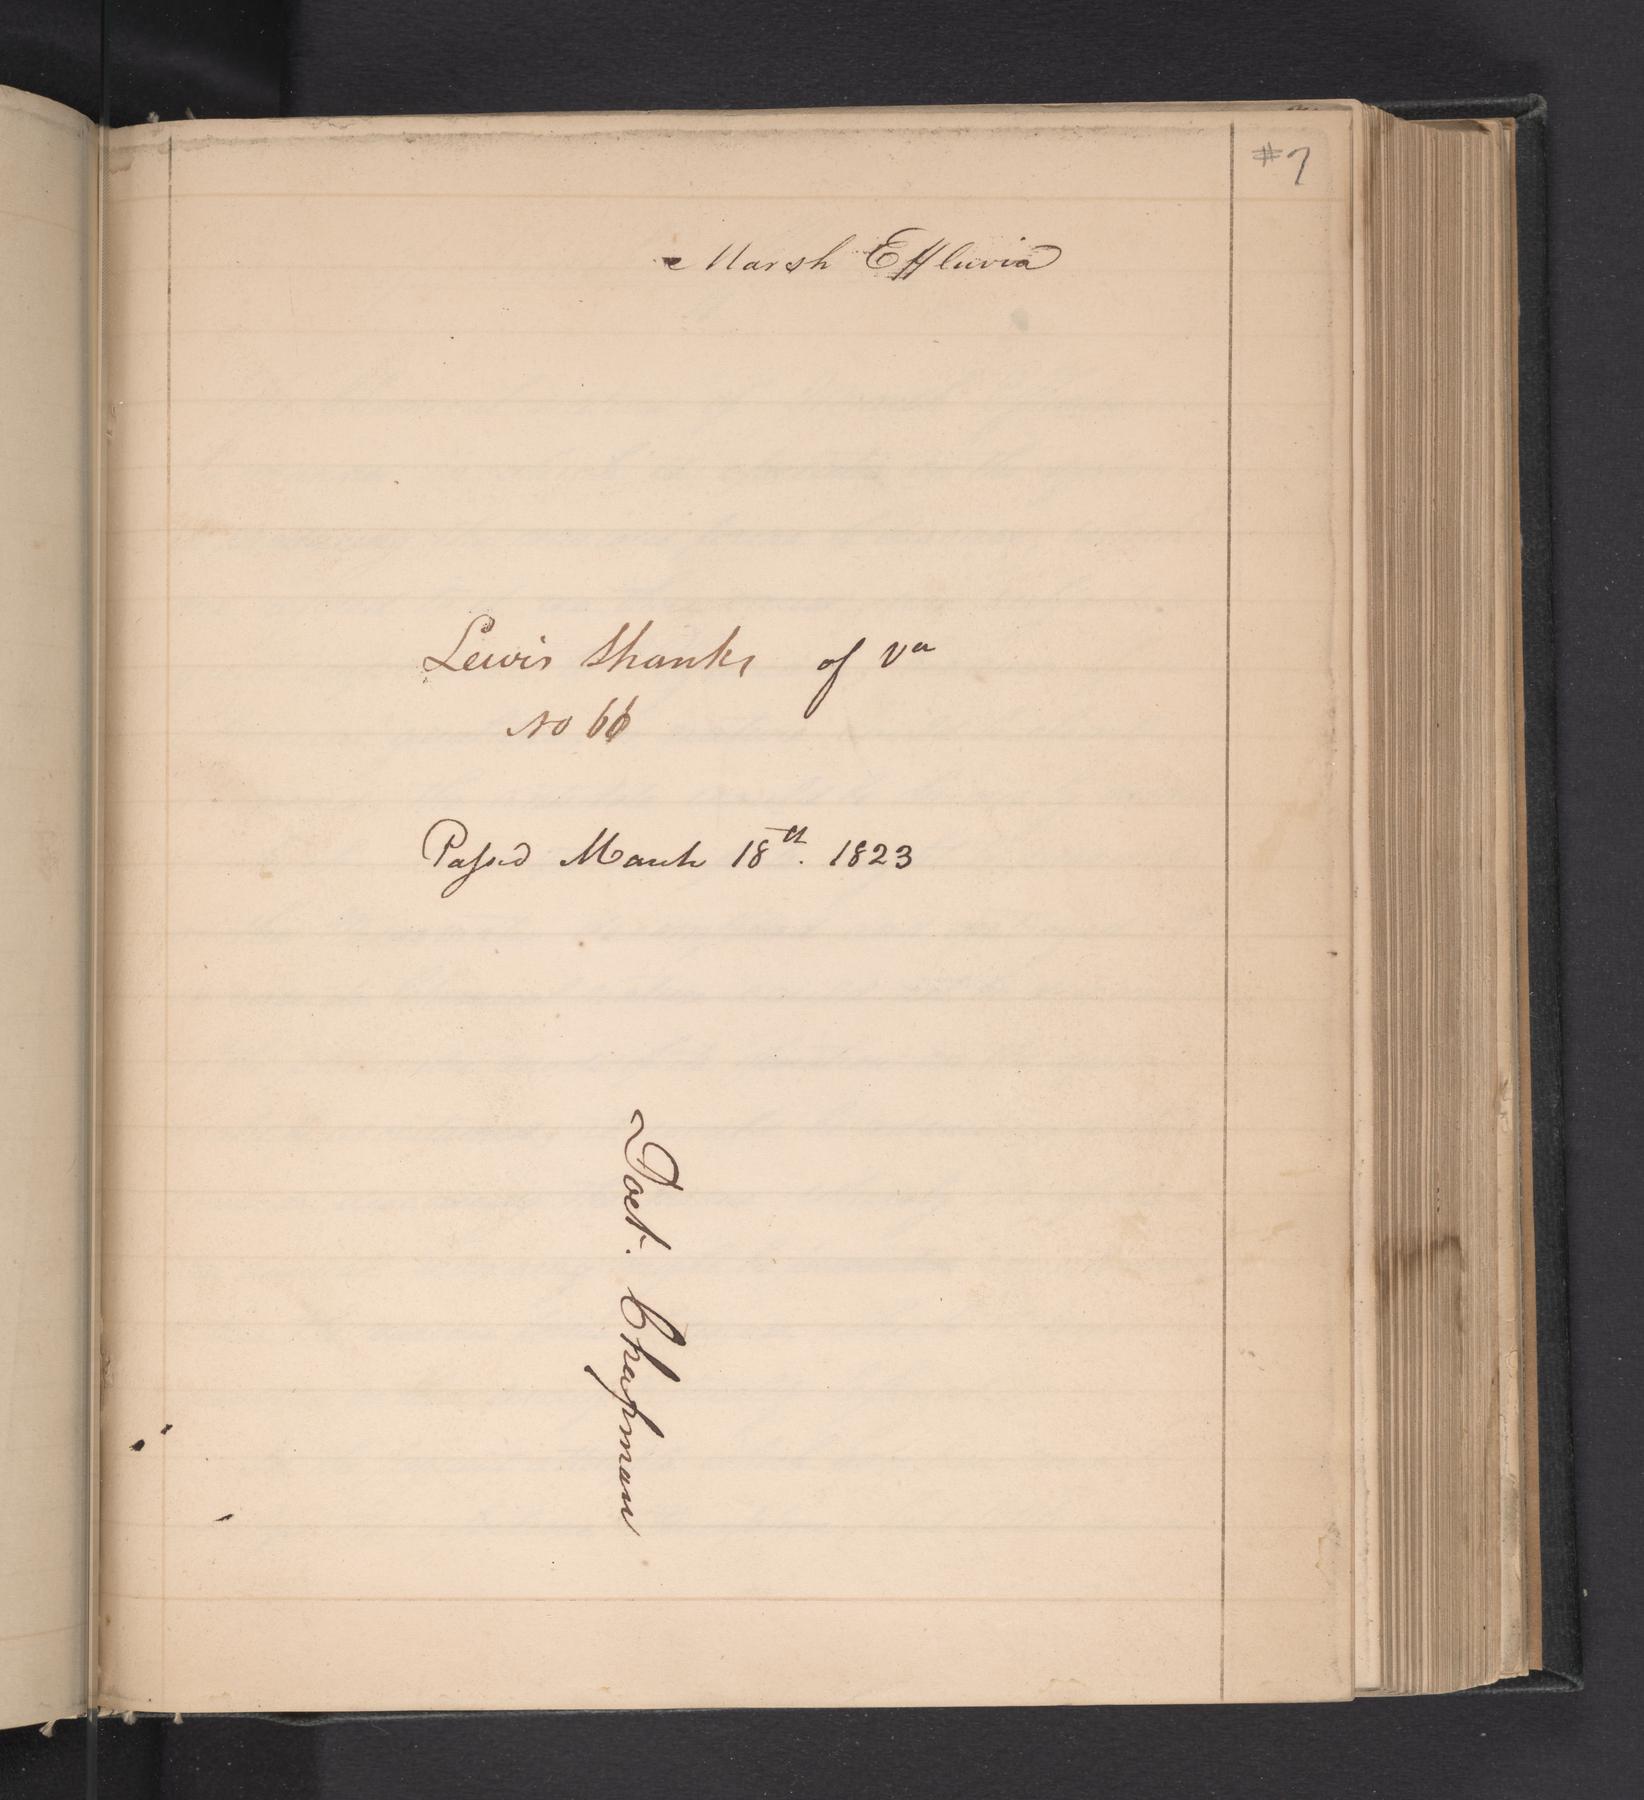 #7
Marsh Effluvia
Lewis Shanks of Va
No 66
Passed March 18th. 1823
Doct. Chapman